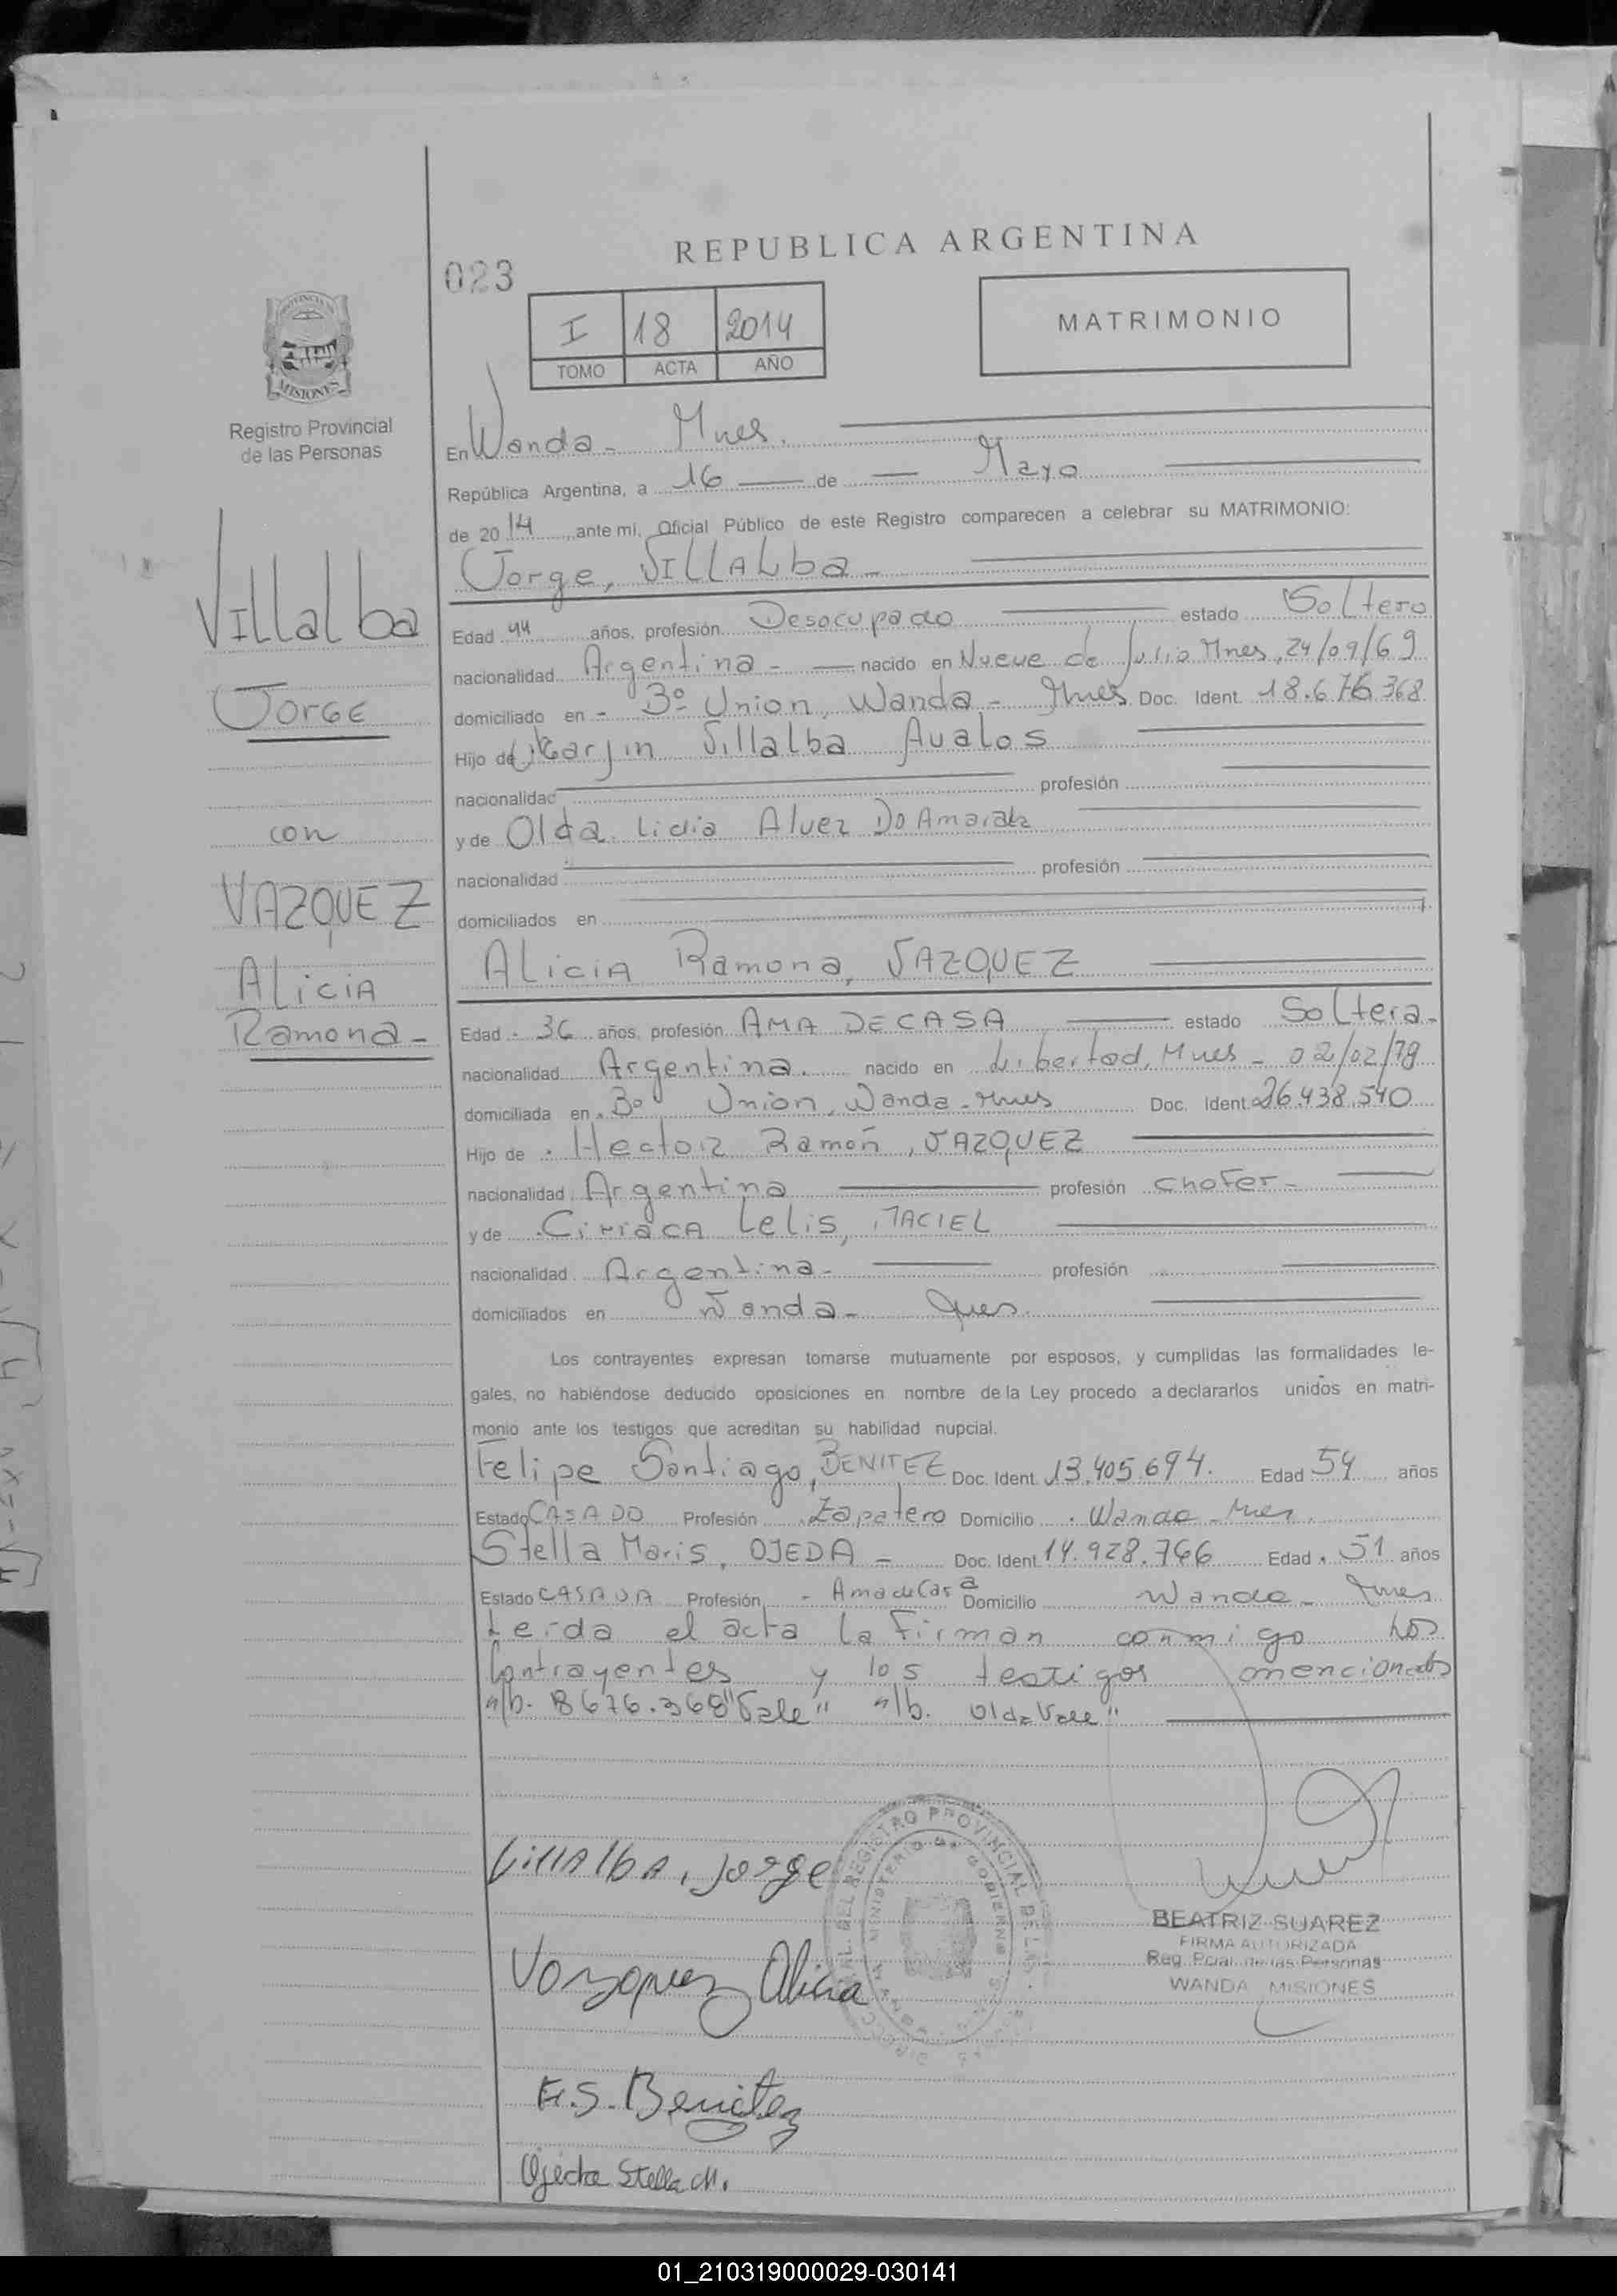 REPUBLICA ARGENTINA
023
I 18 2014
TOMO ACTA AÑO
MATRIMONIO
PROVINCIA DE
MISIONES
Registro Provincial
de las Personas
Villalba
Jorge
con
VAZQUEZ
Alicia
Ramona -
En Wanda - Mnes.
República Argentina, a 16 de Mayo
de 2014, ante mi, Oficial Público de este Registro comparecen a celebrar su MATRIMONIO:
Jorge, VILLALba -
Edad 44 años, profesión Desocupado estado Soltero
nacionalidad Argentina - nacido en Nueve de Julio Mnes, 24/09/69
domiciliado en - Bº Union, Wanda - Mnes Doc. Ident. 18.676.368
Hijo de Villalba Avalos
nacionalidad profesión
y de Olda Lidia Alvez Do Amaral
nacionalidad profesión
domiciliados en
ALiciA Ramona, VAZQUEZ
Edad - 36 años, profesión AMA DE CASA estado Soltera -
nacionalidad Argentina. nacido en Libertad, Mnes - 02/02/78
domiciliada en Bº Union, Wanda - Mnes Doc. Ident. 26.438.540
Hijo de . Hector Ramón, VAZQUEZ
nacionalidad Argentina profesión chofer -
y de Ciriaca Lelis, MACIEL
nacionalidad Argentina - profesión
domiciliados en Wanda - Mnes.
Los contrayentes expresan tomarse mutuamente por esposos, y cumplidas las formalidades le-
gales, no habiéndose deducido oposiciones en nombre de la Ley procedo a declararlos unidos en matri-
monio ante los testigos que acreditan su habilidad nupcial.
Felipe Santiago, BENITEZ Doc. Ident. 13.405.694. Edad 54 años
Estado CASADO Profesión Zapatero Domicilio Wanda - Mnes.
Stella Maris, OJEDA - Doc. Ident. 14.928.766 Edad 51 años
Estado CASADA Profesión - Ama de Casa Domicilio Wanda - Mnes
Leida el acta la Firman conmigo los
Contrayentes y los testigos mencionados
s/b. 8676.368 "Vale" s/b. Olda Vale"
VillAlbA, Jorge
BEATRIZ SUAREZ
FIRMA AUTORIZADA
Reg. Pcial. de las Personas
WANDA MISIONES
Vazquez Alicia
F.S. Benitez
Ojeda Stella M.
01_210319000029-030141